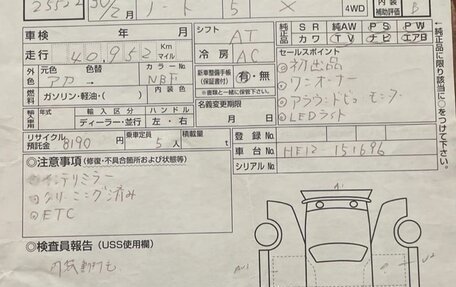 25522 30/2月 ノート 5 X 4WD 内装補助評価 B
車検 年 月 シフト AT 純正品 SR 純AW PS PW
カワ TV ナビ エアB
走行 40,952 Km マイル 冷房 AC セールスポイント
外色 元色 色替 カラーNo. 新車整備手帳(保証書付) 有・無
アカ→ NBF ※書類と一緒に保管して下さい。
①初出品
②ワンオーナー
③アラウンドビューモニター
④LEDライト
燃料 ガソリン・軽油・( ) 内装色 名義変更期限
輸入車用 年式 輸入区分 ハンドル 月 日
ディーラー・並行 左・右
←純正品に限り該当に○をつけて下さい。
リサイクル預託金 8190円 乗車定員 5人 積載量 t 登録No.
車台No. HE12-151696
シリアルNo.
◎注意事項(修復・不具合箇所および状態等)
インテリミラー
クリーニング済み
ETC
◎検査員報告(USS使用欄)